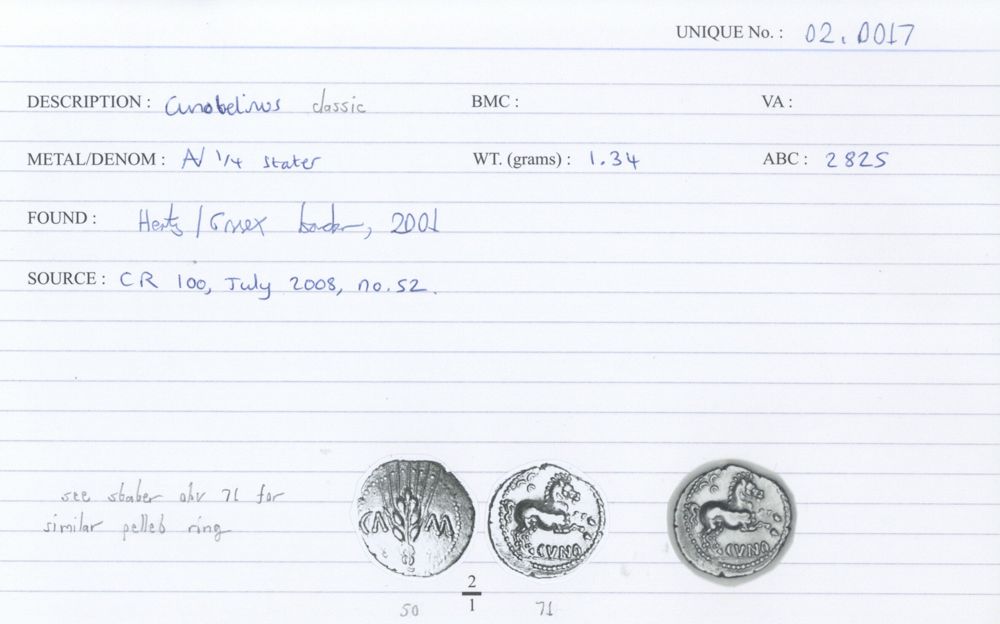 UNIQUE No. : 02.0017
DESCRIPTION : Cunobelinus classic BMC : VA :
METAL/DENOM : AV 1/4 stater WT. (grams) : 1.34 ABC : 2825
FOUND : Herts/Essex border, 2001
SOURCE : CR 100, July 2008, no. 52.
see stater obv 71 for
similar pellet ring
CA MV
CVNO
CVNO
2
1
50 71